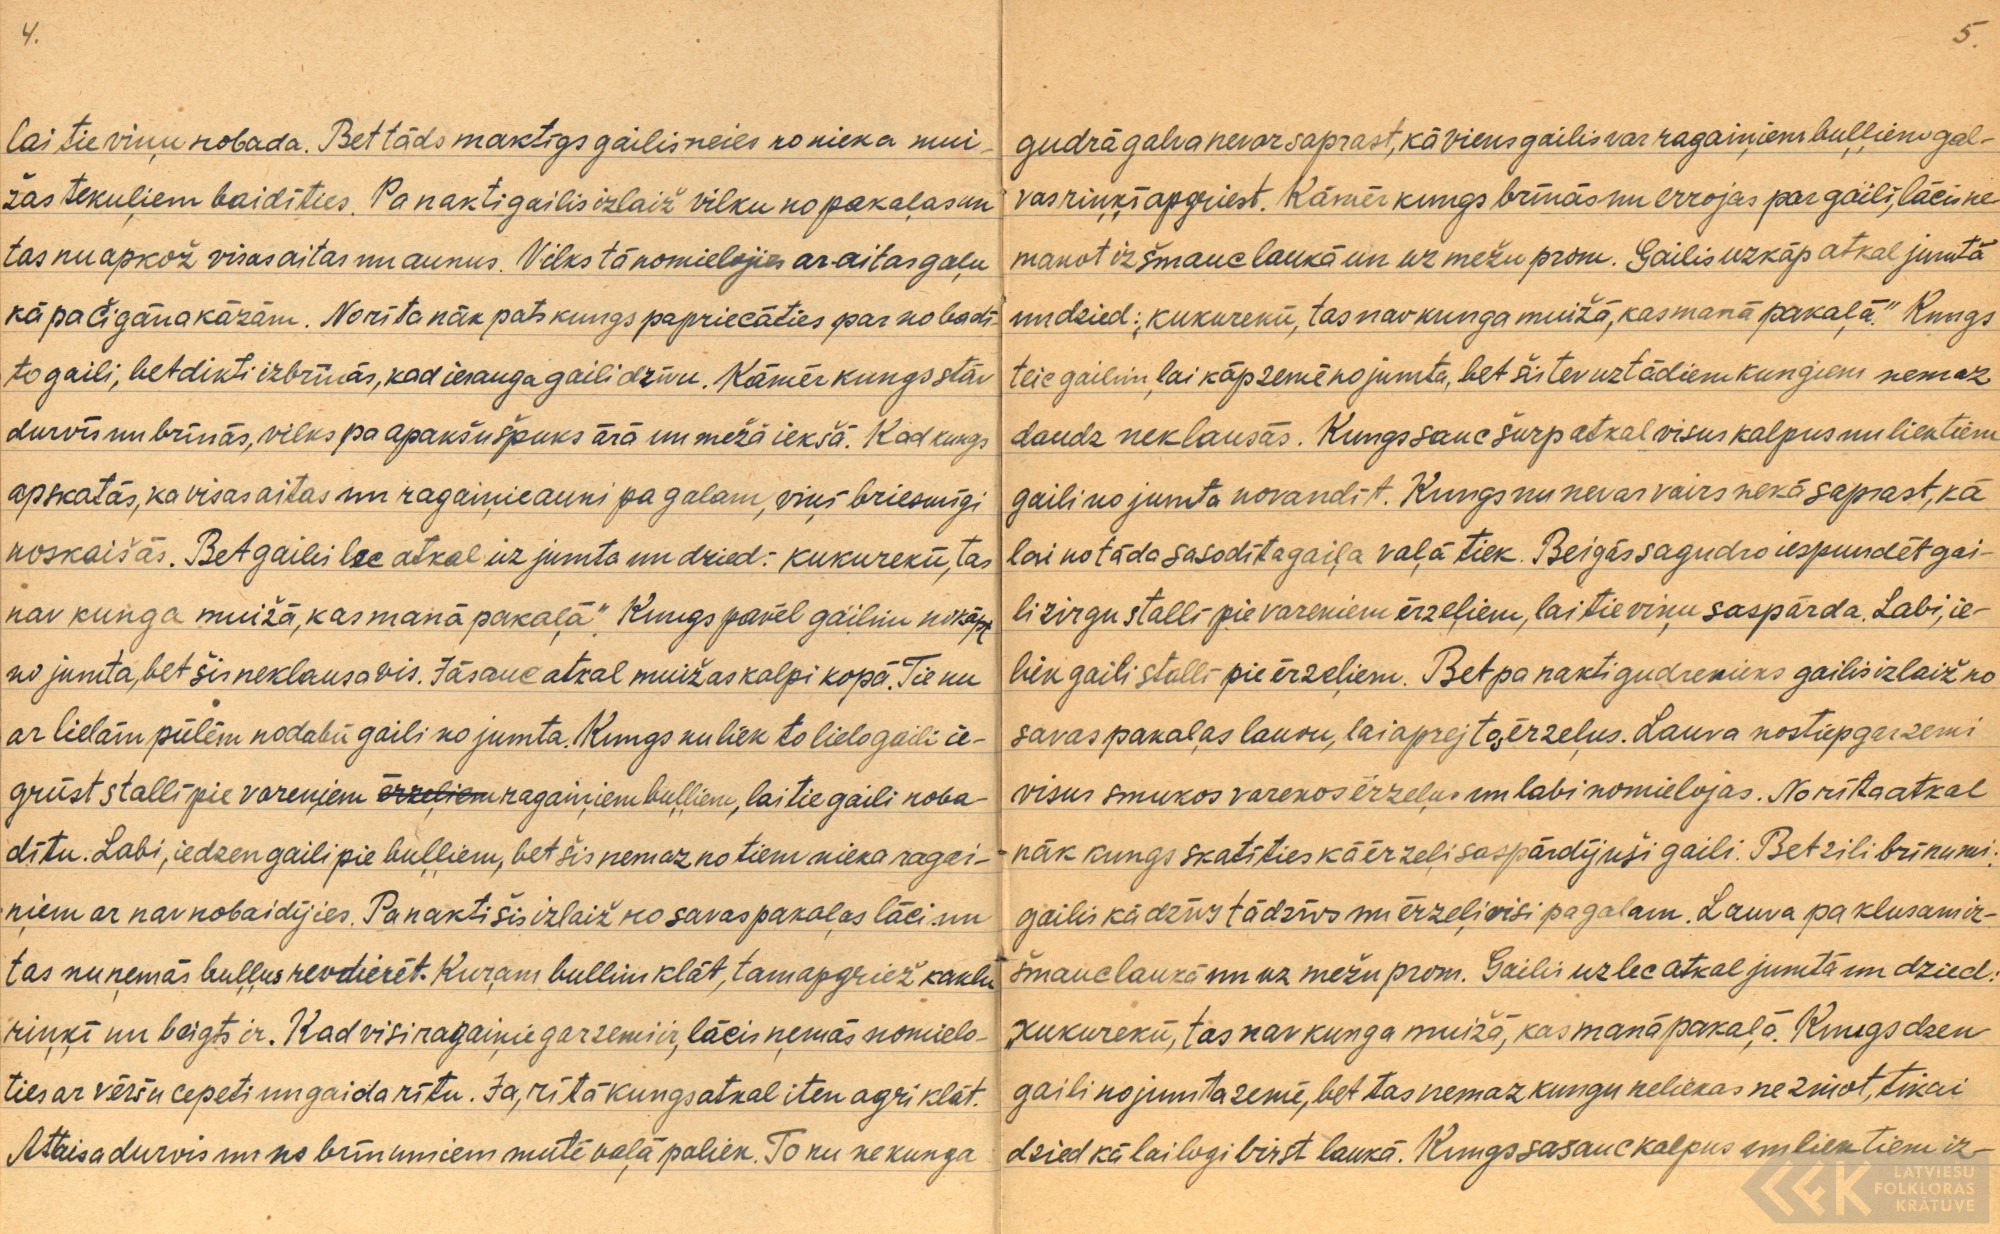 4.
lai tie viņu nobada. Bet tāds maktīgs gailis neies no nieka mui-
žas tekuļiem baidīties. Pa nakti gailis izlaiž vilku no pakaļas un
tas nu apkož visas aitas un aunus. Vilks tā nomielojies ar aitas gaļu
kā pa čigāna kāzām. No rīta nāk pats kungs papriecāties par nobadī-
to gaili, bet dikti izbrīnās, kad ierauga gaili dzīvu. Kāmēr kungs stāv
durvīs un brīnās, vilks pa apakšu špuks ārā un mežā iekšā. Kad kungs
apskatās, ka visas aitas un ragaiņie auni pagalam, viņš briesmīgi
noskaišās. Bet gailis lec atkal uz jumta un dzied: kukurekū, tas
nav kunga muižā, kas manā pakaļā". Kungs pavēl gailim nokāpt
no jumta, bet šis neklausa vis. Jāsauc atkal muižas kalpi kopā. Tie nu
ar lielām pūlēm nodabū gaili no jumta. Kungs nu liek to lielo gaili ie-
grūst stallī pie vareņiem ērzeļiem ragaiņiem buļļiem, lai tie gaili noba-
dītu. Labi, iedzen gaili pie buļļiem, bet šis nemaz no tiem nieka ragai-
ņiem ar nav nobaidījies. Pa nakti šis izlaiž no savas pakaļas lāci un
tas nu ņemās buļļus revdierēt. Kuŗam bullim klāt, tam apgriež kaklu
riņķī un beigts ir. Kad visi ragaiņie gar zemi ir, lācis ņemās nomielo-
ties ar vēršu cepeti un gaida rītu. Ja, rītā kungs atkal iten agri klāt.
Attaisa durvis un no brīnumiem mute vaļā paliek. To nu ne kunga
5.
gudrā galva nevar saprast, kā viens gailis var ragaiņiem buļļiem gal-
vas riņķī apgriest. Kāmēr kungs brīnās un errojas par gaili, lācis ne
manot izšmauc laukā un uz mežu prom. Gailis uzkāp atkal jumtā
un dzied: „kukurekū, tas nav kunga muižā, kas manā pakaļā." Kungs
teic gailim, lai kāp zemē no jumta, bet šis tev uz tādiem kungiem nemaz
daudz neklausās. Kungs sauc šurp atkal visus kalpus un liek tiem
gaili no jumta novandīt. Kungs nu nevar vairs nekā saprast, kā
lai no tāda sasodīta gaiļa vaļā tiek. Beigās sagudro iespundēt gai-
li zirgu stallī pie vareniem ērzeļiem, lai tie viņu saspārda. Labi, ie-
liek gaili stallī pie ērzeļiem. Bet pa nakti gudrenieks gailis izlaiž no
savas pakaļas lauvu, lai aprej tos ērzeļus. Lauva nostiep gar zemi
visus smukos varenos ērzeļus un labi nomielojas. No rīta atkal
nāk kungs skatīties kā ērzeļi saspārdījuši gaili. Bet zili brīnumi:
gailis kā dzīvs tā dzīvs un ērzeļi visi pagalam. Lauva pa klusam iz-
šmauc laukā un uz mežu prom. Gailis uzlec atkal jumtā un dzied:
„kukurekū, tas nav kunga muižā, kas manā pakaļā. Kungs dzen
gaili no jumta zemē, bet tas nemaz kungu neliekas ne zinot, tikai
dzied kā lai logi birst laukā. Kungs sasauc kalpus un liek tiem iz-
LATVIEŠU
FOLKLORAS
KRĀTUVE